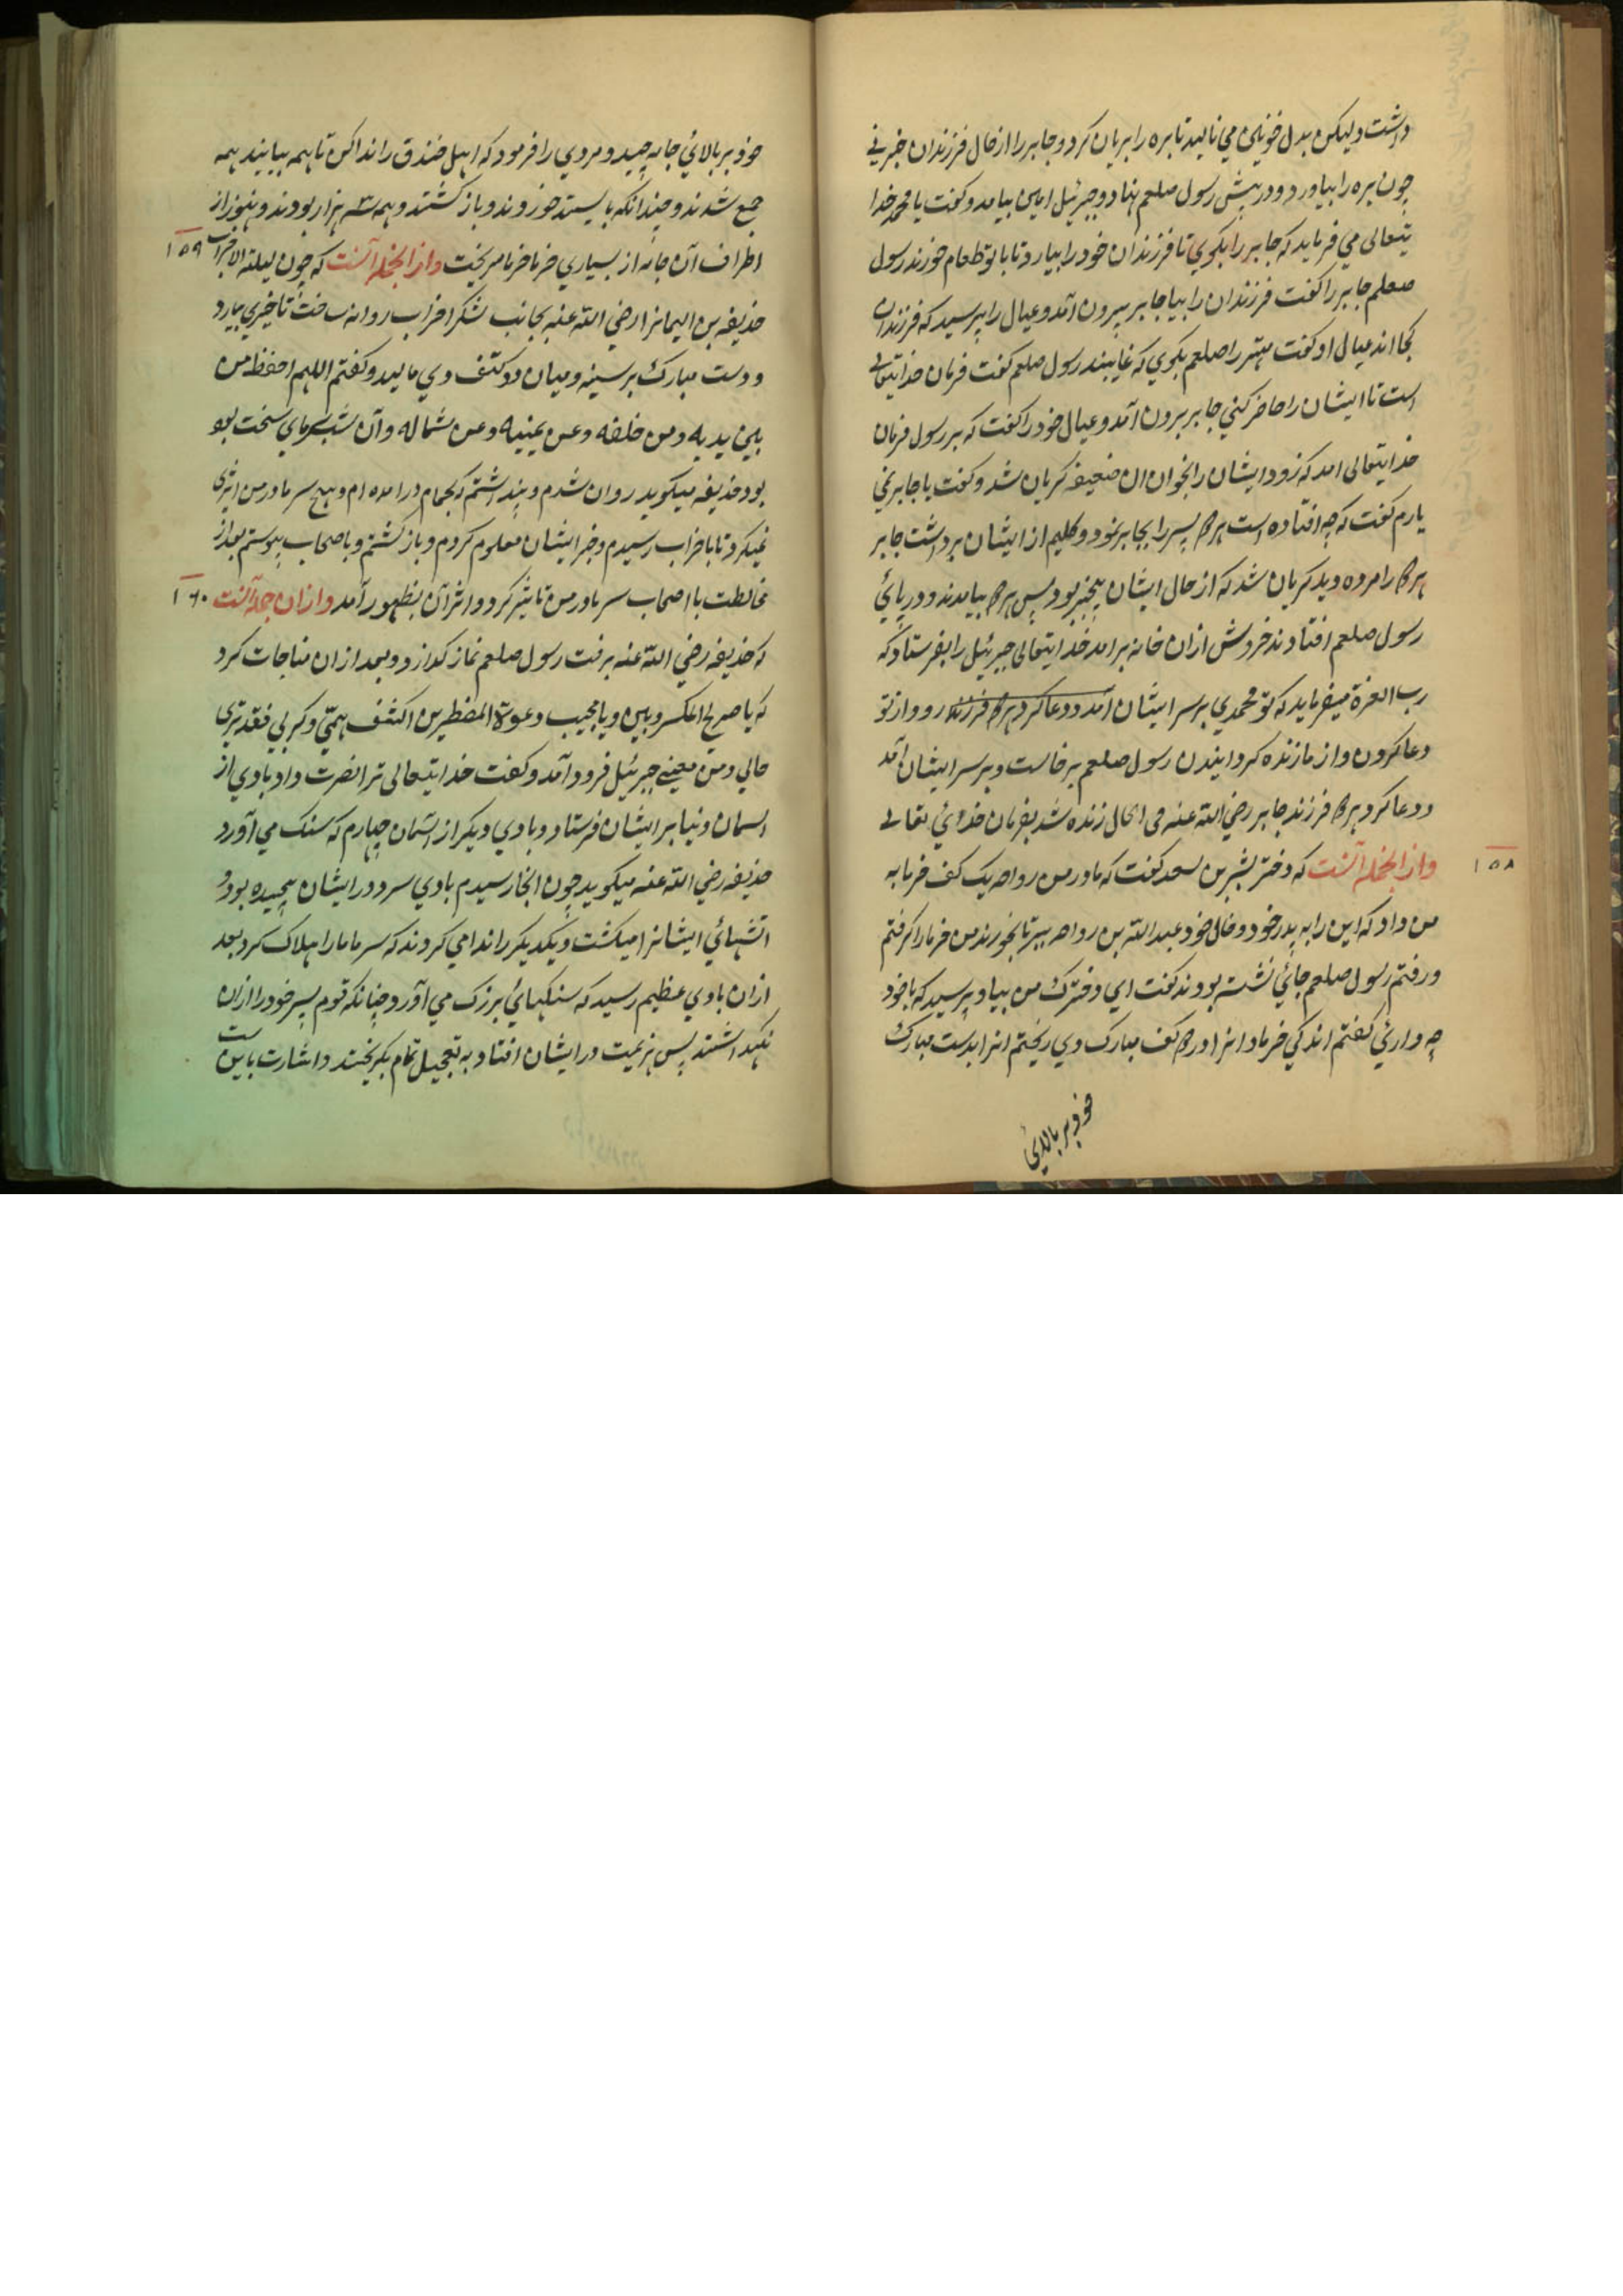 داشت و لیکن بدل خونین می نالید تا بره را بریان کرد و جابر را از حال فرزندان خبر نی
چون بره را بیاورد و در پیش رسول صلعم نهاد و جبرئیل امین بیامد و گفت یا محمد خدا
یتعالی می فرماید که جابر را بگوی تا فرزندان خود را بیارد تا با تو طعام خورند رسول
صلعم جابر را گفت فرزندان را بیار جابر بیرون آمد و عیال را پرسید که فرزندان
کجا اند عیال او گفت مهتر را صلعم بگوی که غایبند رسول صلعم گفت فرمان خدایتعالی
است تا ایشان را حاضر کنی جابر برون آمد و عیال خود را گفت که بر رسول فرمان
خدایتعالی امد که زود ایشان را بخوان ان ضعیفه گریان شد و گفت یا جابر نمی
یارم گفت که چه افتاده است هر دو پسر را بجابر نمود و گلیم از ایشان برداشت جابر
هر دو را مرده دید گریان شد که از حال ایشان بیخبر بود پس هر دو بیامدند و در پائی
رسول صلعم افتادند خروش ازان خانه برامد خدایتعالی جبرئیل را بفرستاد که
رب العزة میفرماید که تو محمدی بر سر ایشان رو و از تو
دعا کردن و از ما زنده گردانیدن رسول صلعم برخاست و بر سر ایشان آمد
و دعا کرد هر دو فرزند جابر رضی الله عنه فی الحال زنده شد بفرمان خدائی تعالی
وازانجمله آنست که دختر بشیر بن سعد گفت که مادر من رواحه یک کف خرما به ۱۵۸
من داد که این را به پدر خود و خال خود عبدالله بن رواحه ببر تا بخورند من خرما را گرفتم
و رفتم رسول صلعم جائی نشسته بودند گفت ای دخترک من بیا و پرسید که با خود
چه داری گفتم اندکی خرما و انرا در دو کف مبارک وی ریختم انرا بدست مبارک
خود بر بالائی
خود بر بالائی جامه چید و مردی را فرمود که اهل خندق را ندا کن تا همه بیایند همه
جمع شدند و چندانکه بایست خوردند و باز گشتند و همه سه هزار بودند و هنوز از
اطراف آن جامه از بسیاری خرما خرما میریخت وازانجمله آنست که چون لیلة الاحزاب ۱۵۹
حذیفه بن الیمانرا رضی الله عنه بجانب لشکر احزاب روانه ساخت تا خبری بیارد
و دست مبارک بر سینه و میان دو کتف وی مالید و گفتم اللهم احفظ من
بین یدیه و من خلفه و عن یمینه و عن شماله و آن شب سرمای سخت بود
بود حذیفه میگوید روان شدم و پنداشتم که بحمام درامده ام و هیچ سرما در من اثری
نمیکرد تا باحزاب رسیدم و خبر ایشان معلوم کردم و باز گشتم و باصحاب پیوستم بعد از
مخالطت با اصحاب سرما در من تاثیر کرد و اثر آن بظهور آمد وازان جمله آنست ۱۶۰
که حذیفه رضی الله عنه برفت رسول صلعم نماز گذارد و بعد ازان مناجات کرد
که یا صریخ المکروبین و یا مجیب دعوة المضطرین اکشف همی و کربی فقد تری
حالی و من معی جبرئیل فرود آمد و گفت خدایتعالی ترا نصرت داد و بادی از
اسمان دنیا بر ایشان فرستاد و بادی دیگر از اسمان چهارم که سنگ می آورد
حذیفه رضی الله عنه میگوید چون انجا رسیدم بادی سرد در ایشان پیچیده بود و
اتشهائی ایشانرا میکشت و یکدیگر را ندا می کردند که سرما ما را هلاک کرد بعد
ازان بادی عظیم رسید که سنگهائی بزرگ می آورد چنانکه قوم سپر خود را ازان
نگهداشتند پس هزیمت در ایشان افتاد به تعجیل تمام بگریختند و اشارت باین است